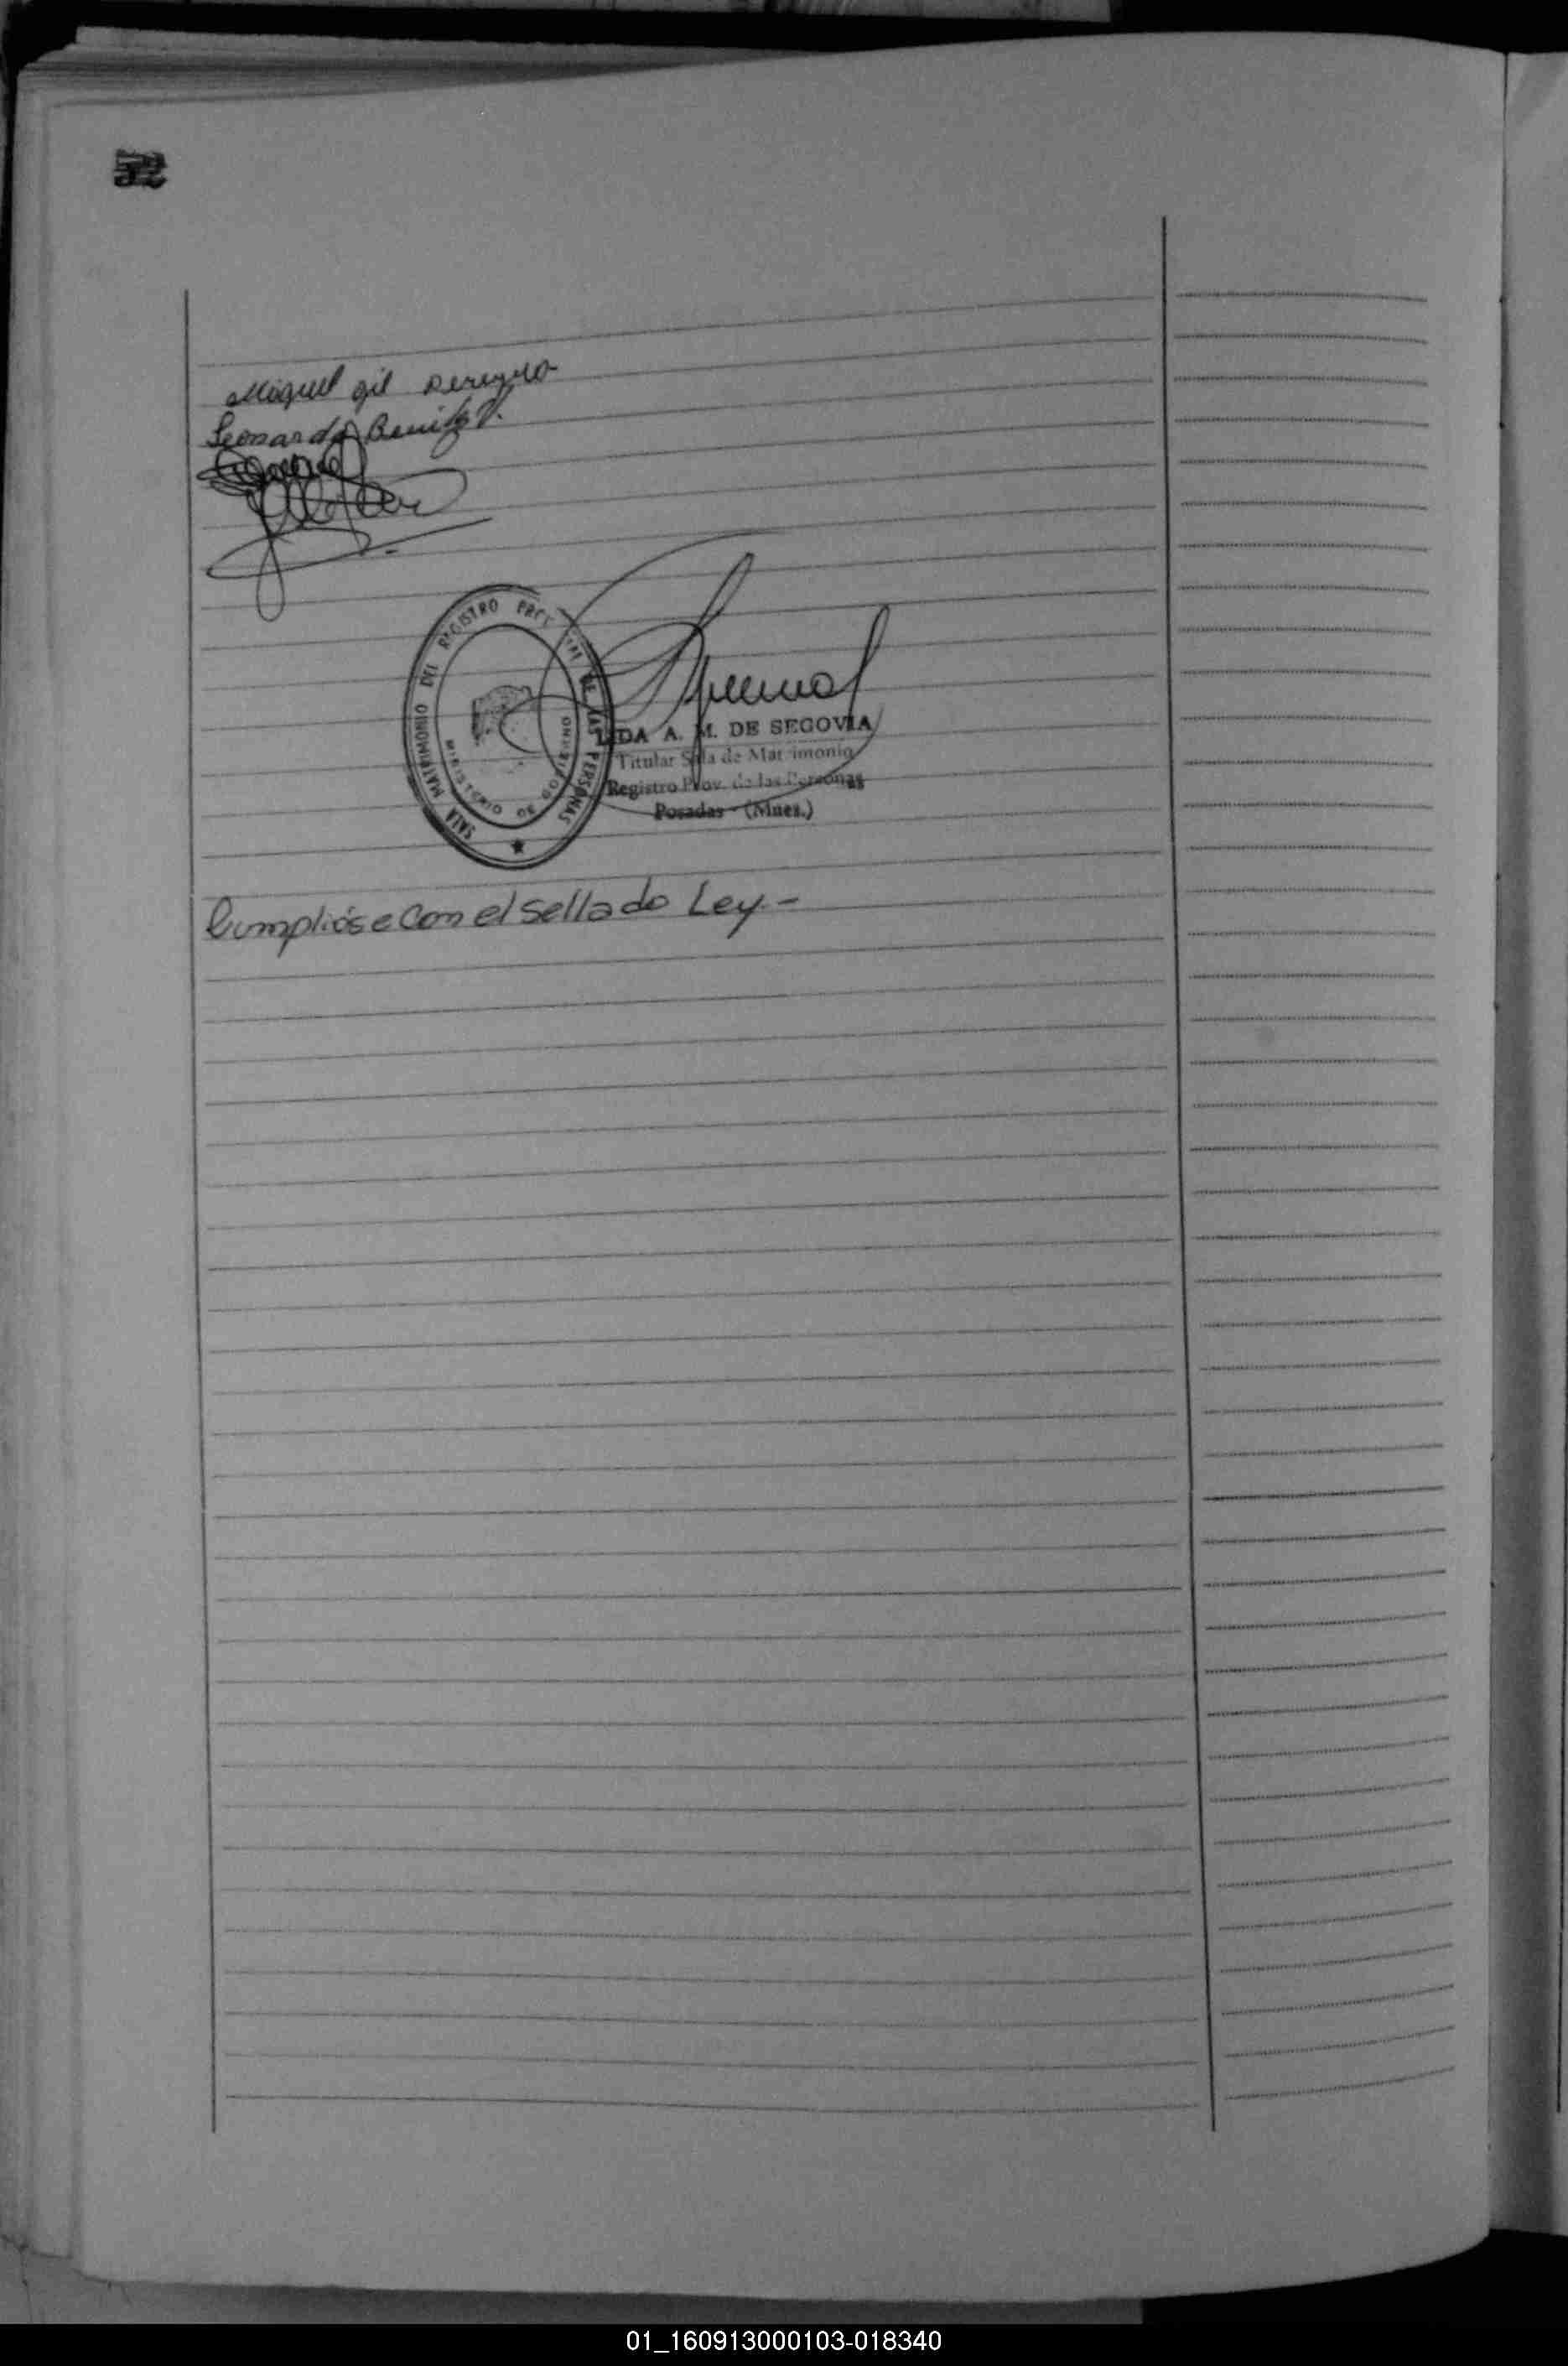 52
Miguel gil
Leonarda Benitez
SALA MATRIMONIO DEL REGISTRO DE LAS PERSONAS
MINISTERIO DE GOBIERNO
A. M. DE SEGOVIA
Titular Sala de Matrimonio
Registro Prov. de las Personas
Posadas - (Mnes.)
Cumplióse con el sellado Ley.-
01_160913000103-018340